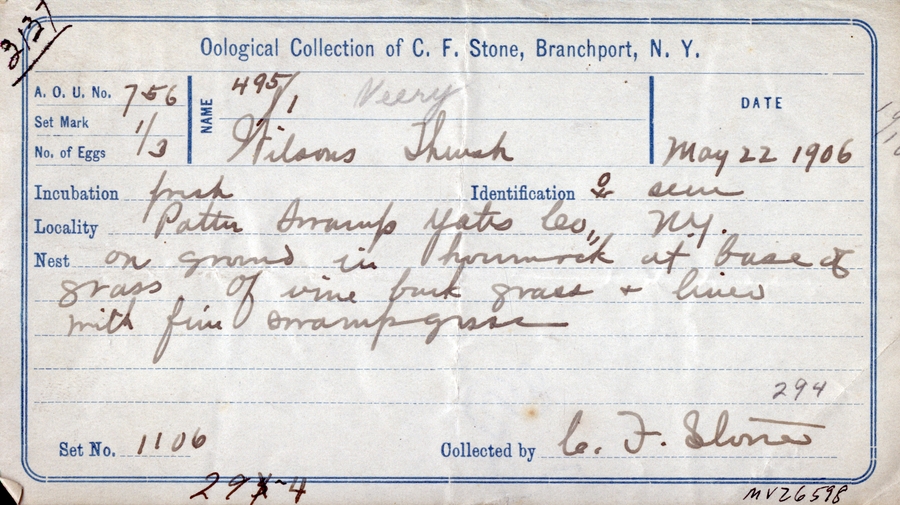 3137
Oological Collection of C. F. Stone, Branchport, N. Y.
A. O. U. No. 756
Set Mark 1/3
No. of Eggs
NAME
495/1 Veery
Wilsons Thrush
DATE
May 22 1906
Incubation fresh Identification ♀ seen
Locality Potter Swamp Yates Co., N.Y.
Nest on ground in hummock at base of
grass of vine bark grass + lined
with fine swamp grass
294
Set No. 1106 Collected by C. F. Stone
MVZ6598